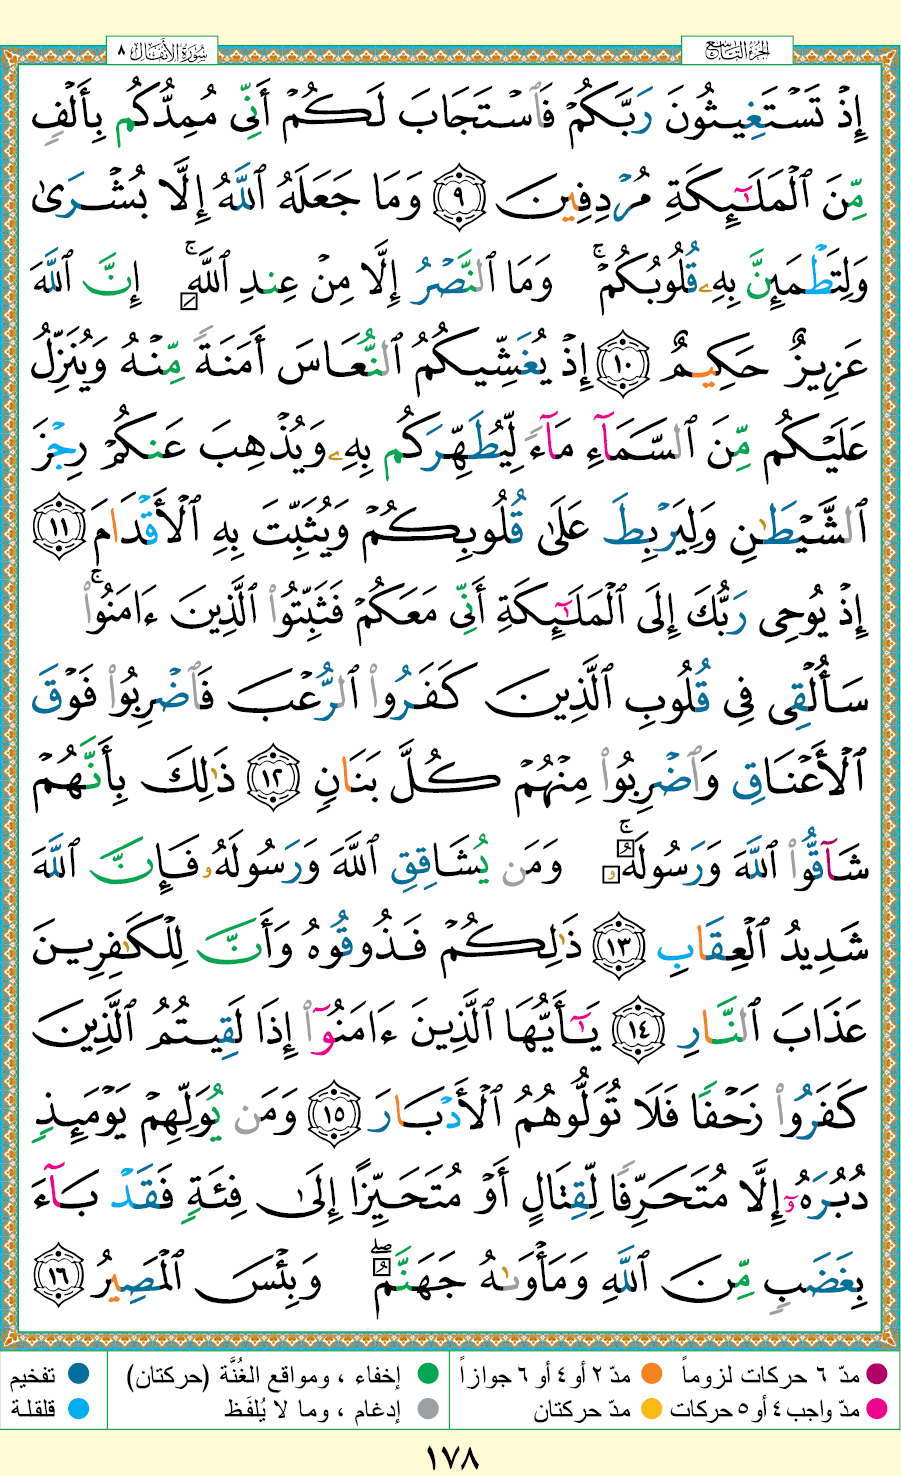 سُورَةُ الأَنفَال ٨
الجُزءُ التَّاسِع
إِذْ تَسْتَغِيثُونَ رَبَّكُمْ فَٱسْتَجَابَ لَكُمْ أَنِّى مُمِدُّكُم بِأَلْفٍ
مِّنَ ٱلْمَلَـٰٓئِكَةِ مُرْدِفِينَ ٩ وَمَا جَعَلَهُ ٱللَّهُ إِلَّا بُشْرَىٰ
وَلِتَطْمَئِنَّ بِهِۦ قُلُوبُكُمْ ۚ وَمَا ٱلنَّصْرُ إِلَّا مِنْ عِندِ ٱللَّهِ ۚ إِنَّ ٱللَّهَ
عَزِيزٌ حَكِيمٌ ١٠ إِذْ يُغَشِّيكُمُ ٱلنُّعَاسَ أَمَنَةً مِّنْهُ وَيُنَزِّلُ
عَلَيْكُم مِّنَ ٱلسَّمَآءِ مَآءً لِّيُطَهِّرَكُم بِهِۦ وَيُذْهِبَ عَنكُمْ رِجْزَ
ٱلشَّيْطَـٰنِ وَلِيَرْبِطَ عَلَىٰ قُلُوبِكُمْ وَيُثَبِّتَ بِهِ ٱلْأَقْدَامَ ١١
إِذْ يُوحِى رَبُّكَ إِلَى ٱلْمَلَـٰٓئِكَةِ أَنِّى مَعَكُمْ فَثَبِّتُوا۟ ٱلَّذِينَ ءَامَنُوا۟ ۚ
سَأُلْقِى فِى قُلُوبِ ٱلَّذِينَ كَفَرُوا۟ ٱلرُّعْبَ فَٱضْرِبُوا۟ فَوْقَ
ٱلْأَعْنَاقِ وَٱضْرِبُوا۟ مِنْهُمْ كُلَّ بَنَانٍ ١٢ ذَٰلِكَ بِأَنَّهُمْ
شَآقُّوا۟ ٱللَّهَ وَرَسُولَهُۥ ۚ وَمَن يُشَاقِقِ ٱللَّهَ وَرَسُولَهُۥ فَإِنَّ ٱللَّهَ
شَدِيدُ ٱلْعِقَابِ ١٣ ذَٰلِكُمْ فَذُوقُوهُ وَأَنَّ لِلْكَـٰفِرِينَ
عَذَابَ ٱلنَّارِ ١٤ يَـٰٓأَيُّهَا ٱلَّذِينَ ءَامَنُوٓا۟ إِذَا لَقِيتُمُ ٱلَّذِينَ
كَفَرُوا۟ زَحْفًا فَلَا تُوَلُّوهُمُ ٱلْأَدْبَارَ ١٥ وَمَن يُوَلِّهِمْ يَوْمَئِذٍ
دُبُرَهُۥٓ إِلَّا مُتَحَرِّفًا لِّقِتَالٍ أَوْ مُتَحَيِّزًا إِلَىٰ فِئَةٍ فَقَدْ بَآءَ
بِغَضَبٍ مِّنَ ٱللَّهِ وَمَأْوَىٰهُ جَهَنَّمُ ۖ وَبِئْسَ ٱلْمَصِيرُ ١٦
مدّ ٦ حركات لزوماً مدّ ٢ أو ٤ أو ٦ جوازاً إخفاء ، ومواقع الغُنَّة (حركتان) تفخيم
مدّ واجب ٤ أو ٥ حركات مدّ حركتان إدغام ، وما لا يُلفَظ قلقلة
١٧٨